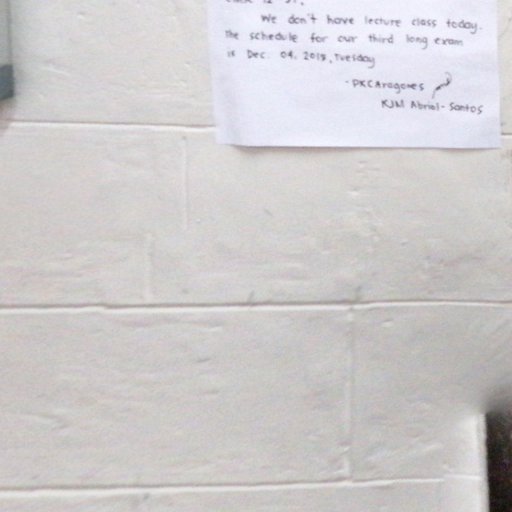 We don't have lecture class today.
The schedule for our third long exam
is Dec. 04, 2018, Tuesday
- PKCAragones
KJM Abriol-Santos